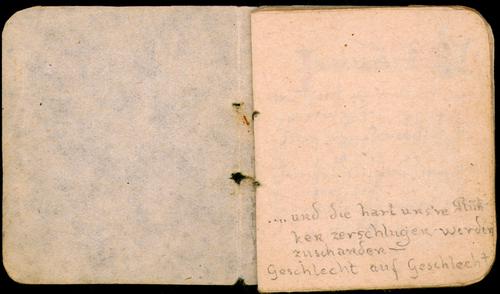 .... und die hart uns're Rük-
ker zerschlugen werden
zuschanden —
Geschlecht auf Geschlecht